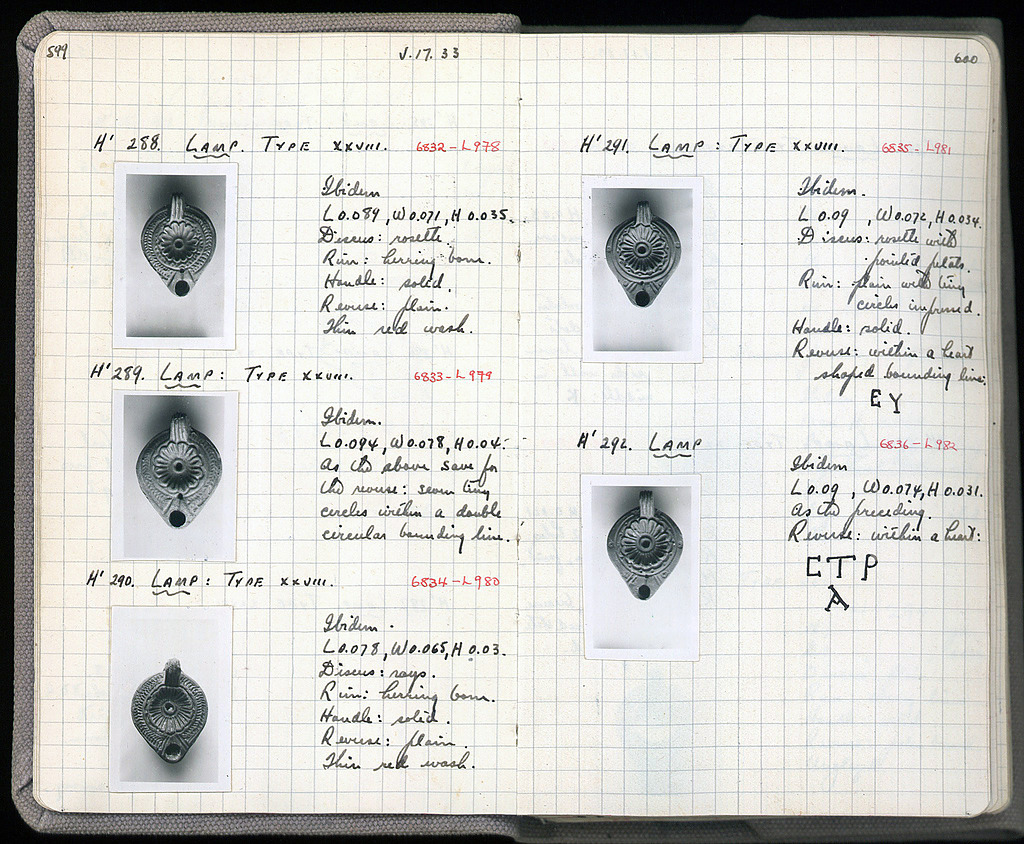 599
V.17.33
H' 288. LAMP. TYPE XXVIII. 6832-L978
Ibidem
L 0.089, W 0.071, H 0.035.
Discus: rosette.
Rim: herring bone.
Handle: solid.
Reverse: plain.
Thin red wash.
H' 289. LAMP: TYPE XXVIII. 6833-L979
Ibidem.
L 0.094, W 0.078, H 0.04.
As the above save for
the reverse: seven tiny
circles within a double
circular bounding line.
H' 290. LAMP: TYPE XXVIII. 6834-L980
Ibidem.
L 0.078, W 0.065, H 0.03.
Discus: rays.
Rim: herring bone.
Handle: solid.
Reverse: plain.
Thin red wash.
600
H' 291. LAMP: TYPE XXVIII. 6835-L981
Ibidem.
L 0.09, W 0.072, H 0.034.
Discus: rosette with
pointed petals.
Rim: plain with tiny
circles impressed.
Handle: solid.
Reverse: within a heart
shaped bounding line:
EY
H' 292. LAMP 6836-L982
Ibidem
L 0.09, W 0.074, H 0.031.
As the preceding.
Reverse: within a heart:
CTP
A